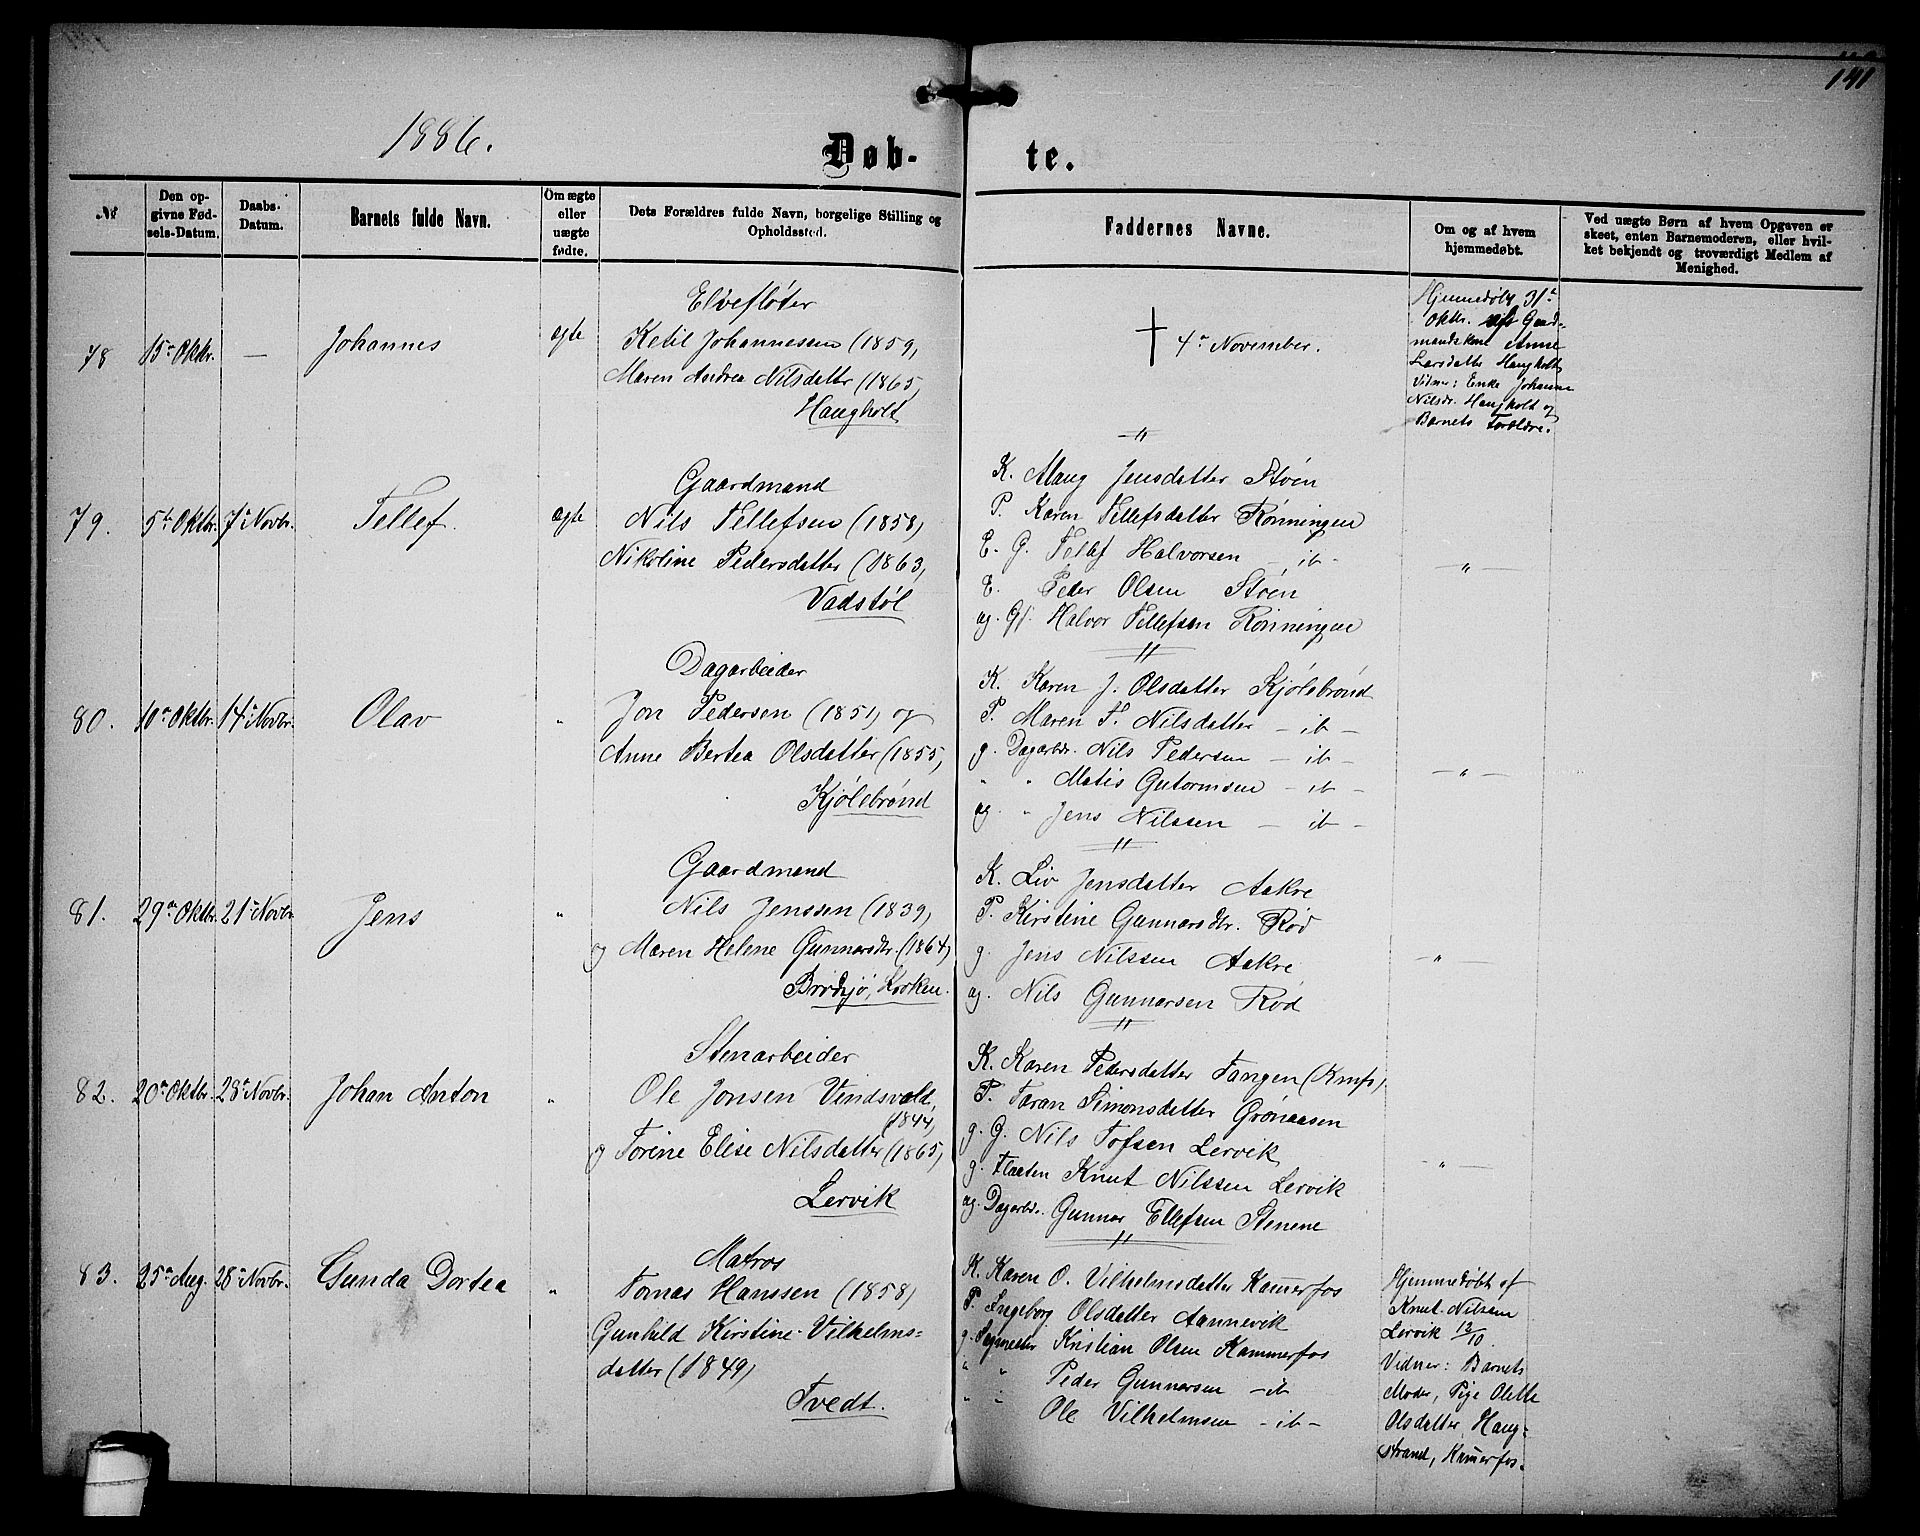 141
1886.
Døb-
te.
№
Den op-
givne Fød-
sels-Datum.
Daabs-
Datum.
Barnets fulde Navn.
Om ægte
eller
uægte
fødte.
Dets Forældres fulde Navn, borgelige Stilling og
Opholdssted.
Faddernes Navne.
Om og af hvem
hjemmedøbt.
Ved uægte Børn af hvem Opgaven er
skeet, enten Barnemoderen, eller hvil-
ket bekjendt og troværdigt Medlem af
Menighed.
78
15de Oktbr.
—
Johannes
ægte
Elvefløter
Ketil Johannessen (1859,
Maren Andrea Nilsdatter (1865,
Haugholt
† 4de November.
Hjemmedøbt 31te
Oktbr. af Gaard-
mandskone Anne
Larsdatter Haugholt
Vidner: Enke Johanne
Nilsdr. Haugholt og
Barnets Forældre.
—"—
79.
5te Oktbr.
7de Novbr.
Tellef.
ægte
Gaardmand
Nils Tellefsen (1858,
Nikoline Pedersdatter (1863,
Vadstøl
K. Maug Jensdatter Støen
P. Karen Tellefsdatter Rønningen
E. G. Tellef Halvorsen — ib —
E. Peder Olsen Støen
ag. Gs. Halvor Tellefsen Rønningen
— " —
80.
10de Oktbr.
14de Novbr.
Olav
"
Dagarbeider
Jon Pedersen (1851, og
Anne Bertea Olsdatter (1855,
Kjølebrønd
K. Karen J. Olsdatter Kjølebrønd
P. Maren T. Nilsdatter — ib —
g. Dagarbdr. Nils Pedersen — ib —
" " Matis Gutormsen — ib —
ag. " Jens Nilssen — ib —
— " —
81.
29de Oktbr.
21de Novbr.
Jens
"
Gaardmand
Nils Jenssen (1839,
og Maren Helene Gunnarsdtr. (1864,
Brødsjø, Korken.
K. Liv Jensdatter Aakre
P. Kirstine Gunnarsdtr. Rød
g. Jens Nilssen Aakre
ag. Nils Gunnarsen Rød
— " —
82.
20de Oktbr.
28de Novbr.
Johan Anton
"
Stenarbeider
Ole Jonsen Vindsvold,
(1844,
og Torine Elise Nilsdatter (1865,
Lervik
K. Karen Pedersdatter Tangen (Kmfs,
P. Taran Simonsdatter Grønaasen
g. G. Nils Tofsen Lervik
g. Flaaten Knut Nilssen Lervik
ag. Dagarbdr. Gunnar Ellefsen Stenene
— " —
83.
25de Aug.
28de Novbr.
Gunda Dortea
"
Matros
Tomas Hanssen (1858,
Gunhild Kirstine Vilhelms-
datter (1849,
Tvedt.
K. Karen O. Vilhelmsdatter Kammerfos
P. Ingeborg Olsdatter Aannevik
g. Kristian Olsen Kammerfos
" " Peder Gunnarsen — ib
" " Ole Vilhelmsen — ib —
Hjemmedøbt af
Knut Nilssen
Lervik 13/10
Vidner: Barnets
Moder, Pige Olette
Olsdatter Haug-
strand, Kammerfos.